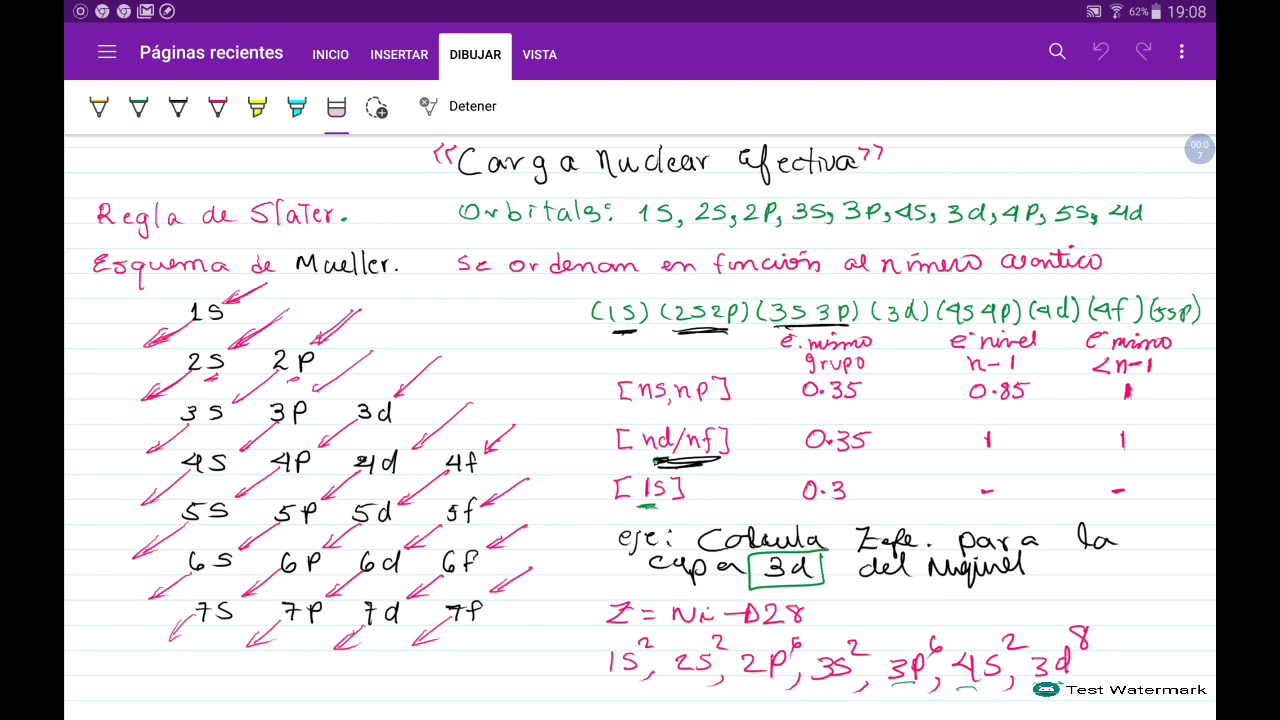 62% 19:08
Páginas recientes INICIO INSERTAR DIBUJAR VISTA
Detener
00:0
7
"Carga nuclear efectiva"
Regla de Slater. Orbitals: 1s, 2s, 2p, 3s, 3p, 4s, 3d, 4p, 5s, 4d
Esquema de Mueller. Se ordenan en función al número atomtico
1s
2s 2p
3s 3p 3d
4s 4p 4d 4f
5s 5p 5d 5f
6s 6p 6d 6f
7s 7p 7d 7f
(1s) (2s2p) (3s 3p) (3d) (4s4p) (4d) (4f) (5s5p)
e⁻ mismo e⁻ nivel e⁻ mismo
grupo n-1 <n-1
[ns,np] 0.35 0.85 1
[nd/nf] 0.35 1 1
[1s] 0.3 - -
eje: Calcula Zefe. para la
capa 3d del Niquel
Z = Ni → 28
1s², 2s², 2p⁶, 3s², 3p⁶, 4s², 3d⁸
Test Watermark